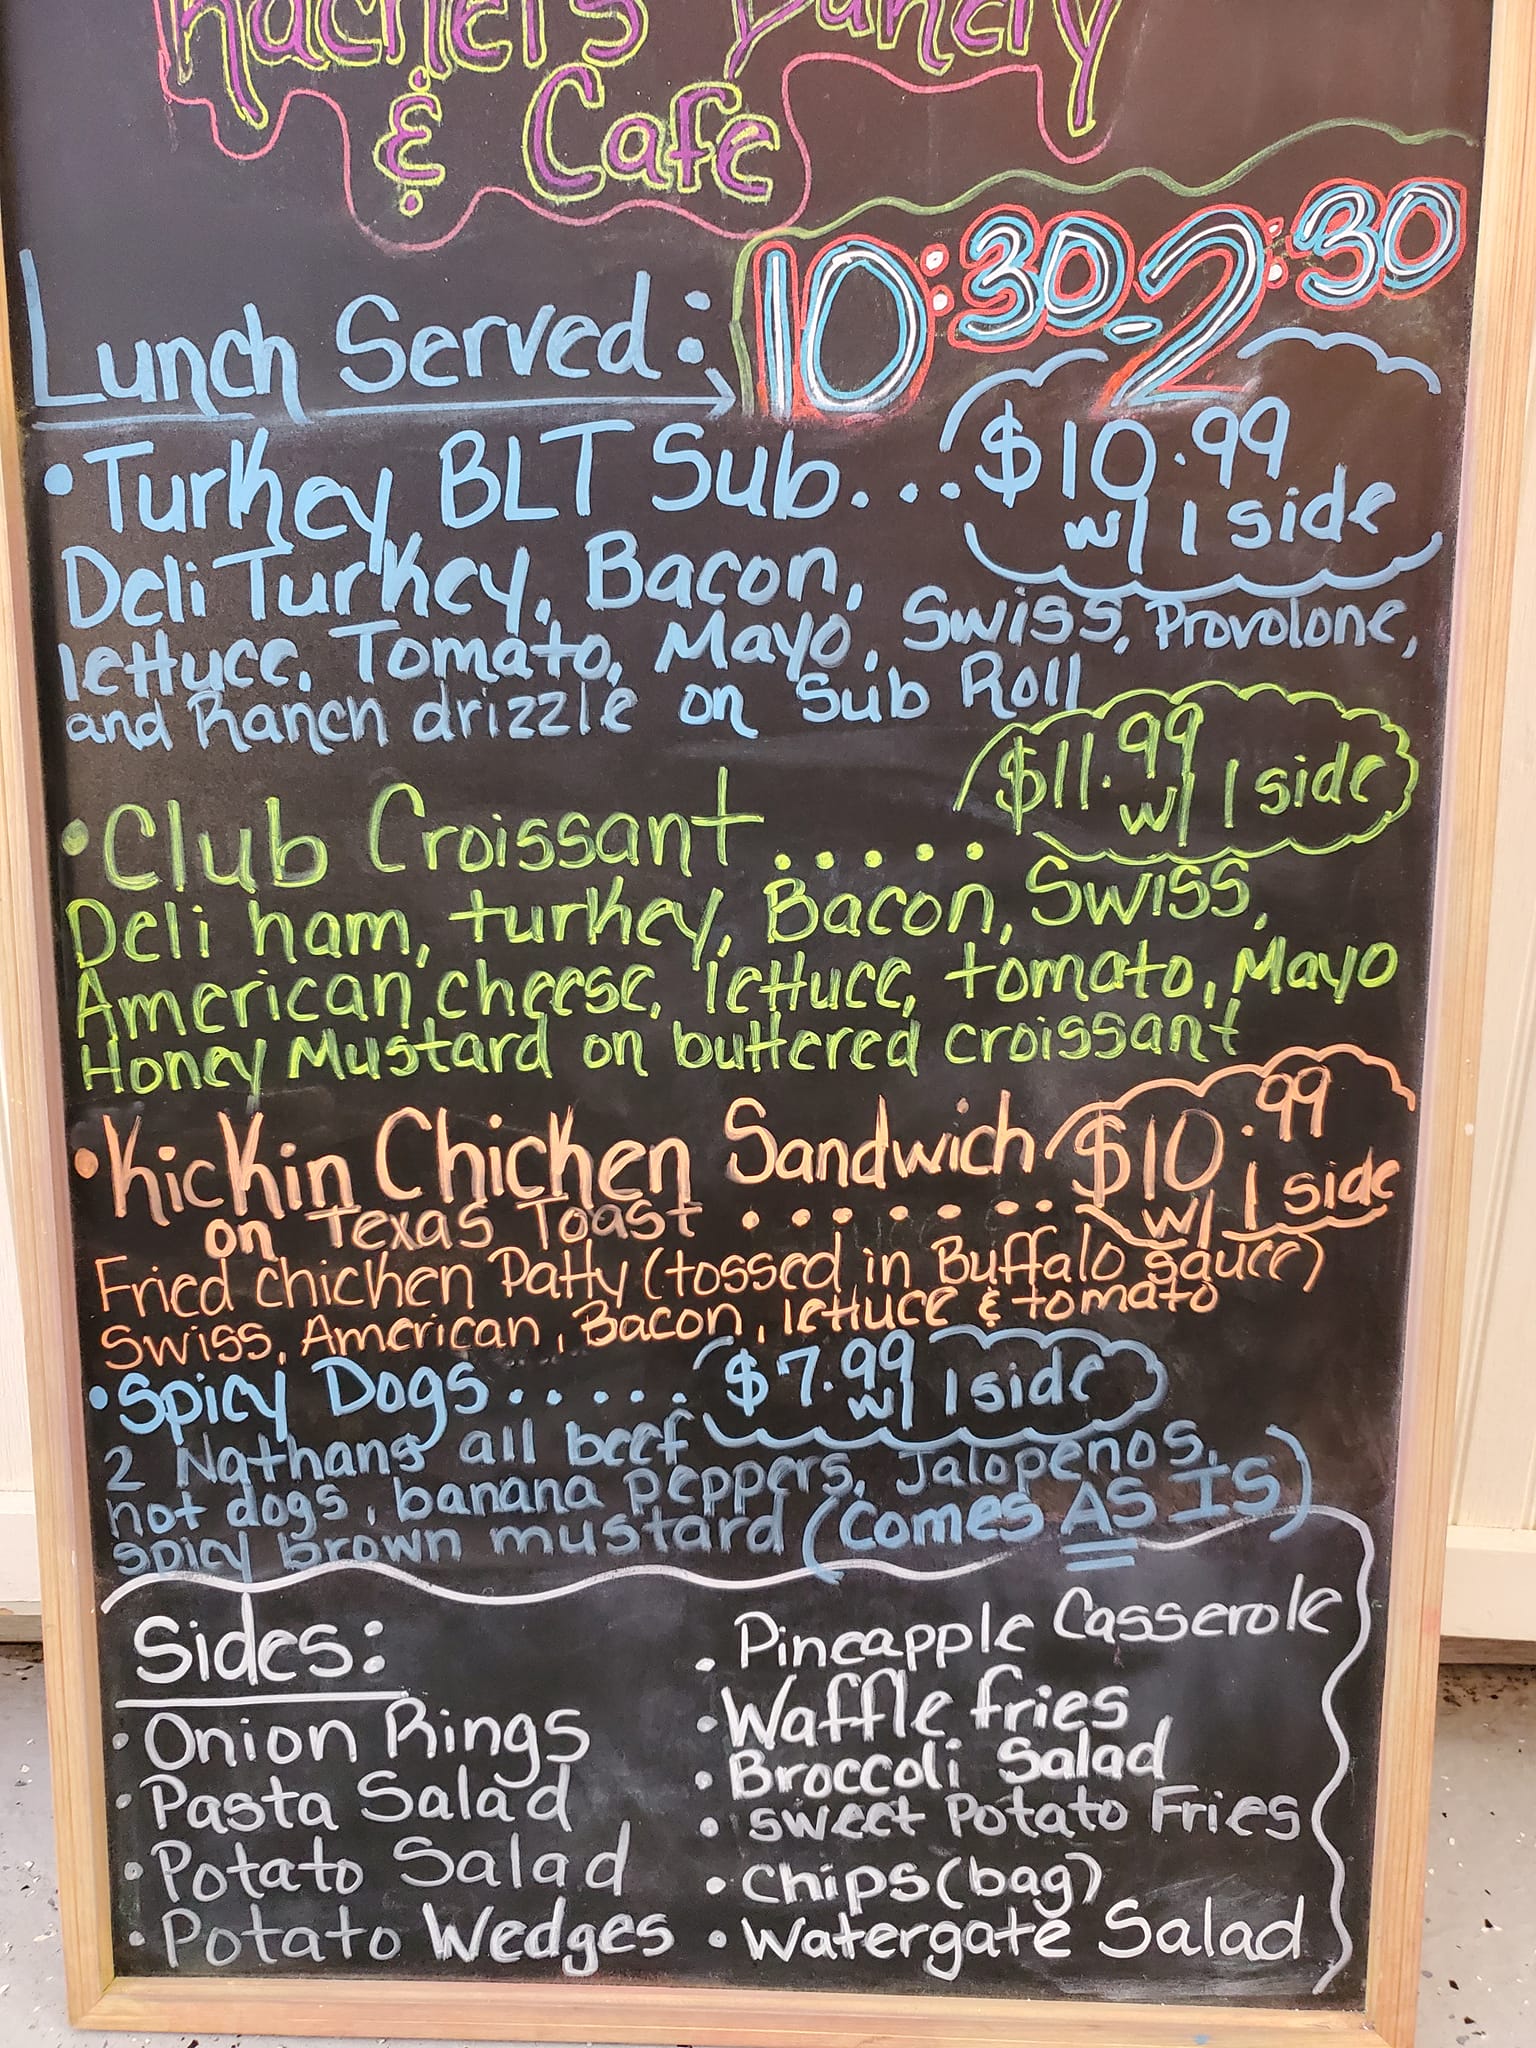 Rachel's Pantry
& Cafe
Lunch Served: 10:30-2:30
• Turkey BLT Sub... $10.99
w/ 1 side
Deli Turkey, Bacon,
lettuce, Tomato, Mayo, Swiss, Provolone,
and Ranch drizzle on Sub Roll
• Club Croissant..... $11.99
w/ 1 side
Deli ham, turkey, Bacon, Swiss,
American cheese, lettuce, tomato, Mayo
Honey Mustard on buttered croissant
• Kickin Chicken Sandwich $10.99
on Texas Toast ....... w/ 1 side
Fried chicken Patty (tossed in Buffalo sauce)
Swiss, American, Bacon, lettuce & tomato
• Spicy Dogs..... $7.99
w/ 1 side
2 Nathans all beef
hot dogs, banana peppers, Jalopenos,
spicy brown mustard (Comes AS IS)
Sides:
• Onion Rings
• Pasta Salad
• Potato Salad
• Potato Wedges
• Pineapple Casserole
• Waffle fries
• Broccoli Salad
• sweet Potato Fries
• Chips (bag)
• Watergate Salad